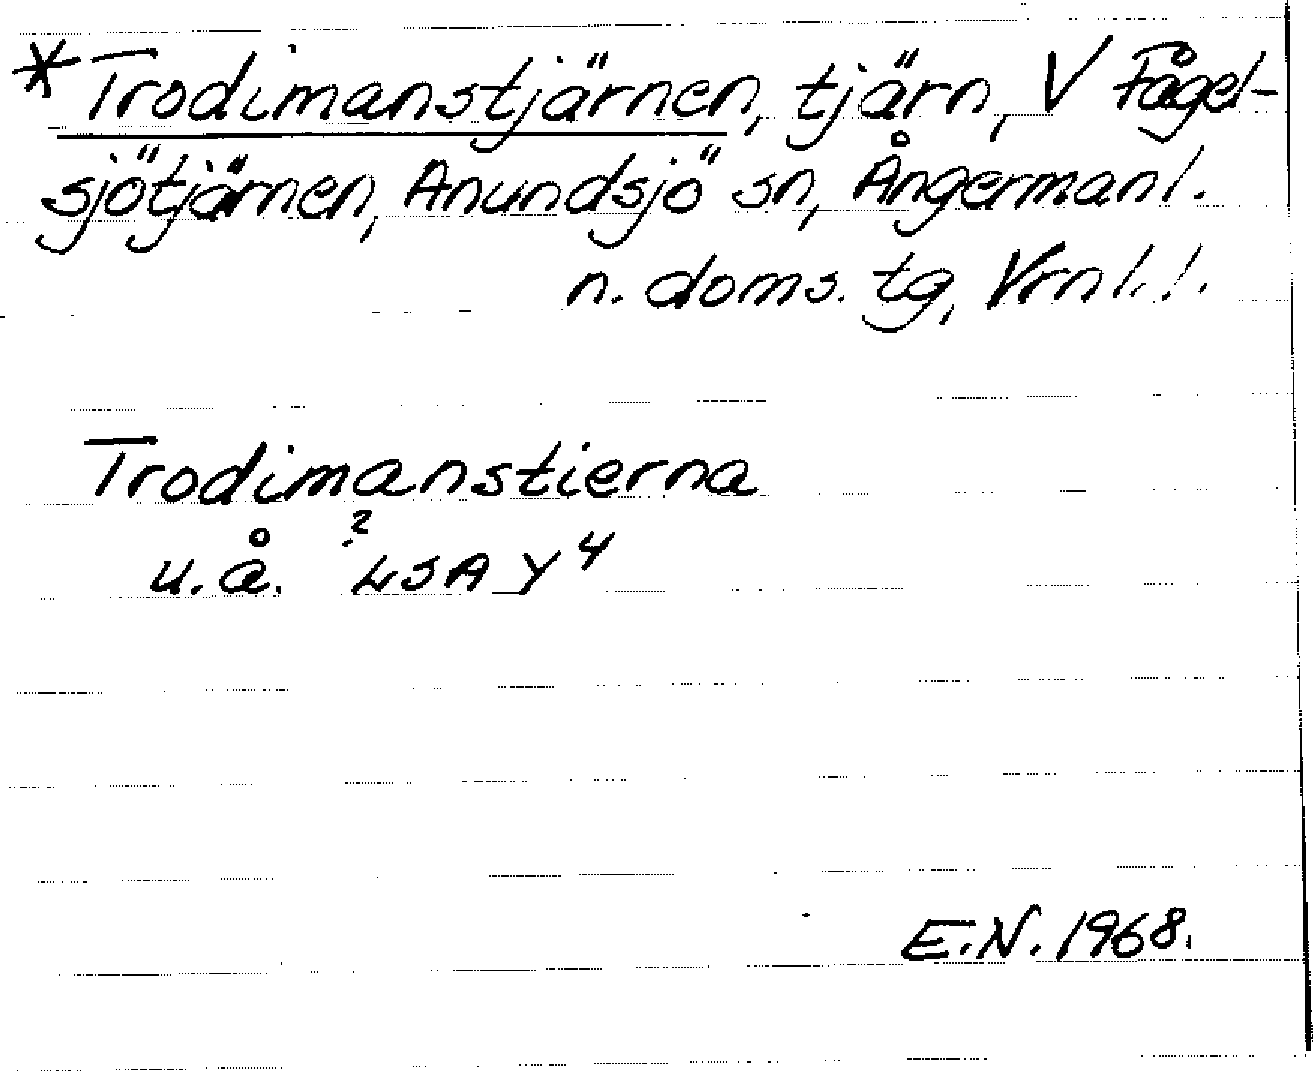 *Trodimanstjärnen, tjärn, V Fågel-
sjötjärnen, Anundsjö sn, Ångermanl.
n. doms. tg, Vrnl. l.
Trodimanstierna
u. å. ? LSA Y4
E.N. 1968.